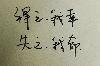 得之，我幸
失之，我命